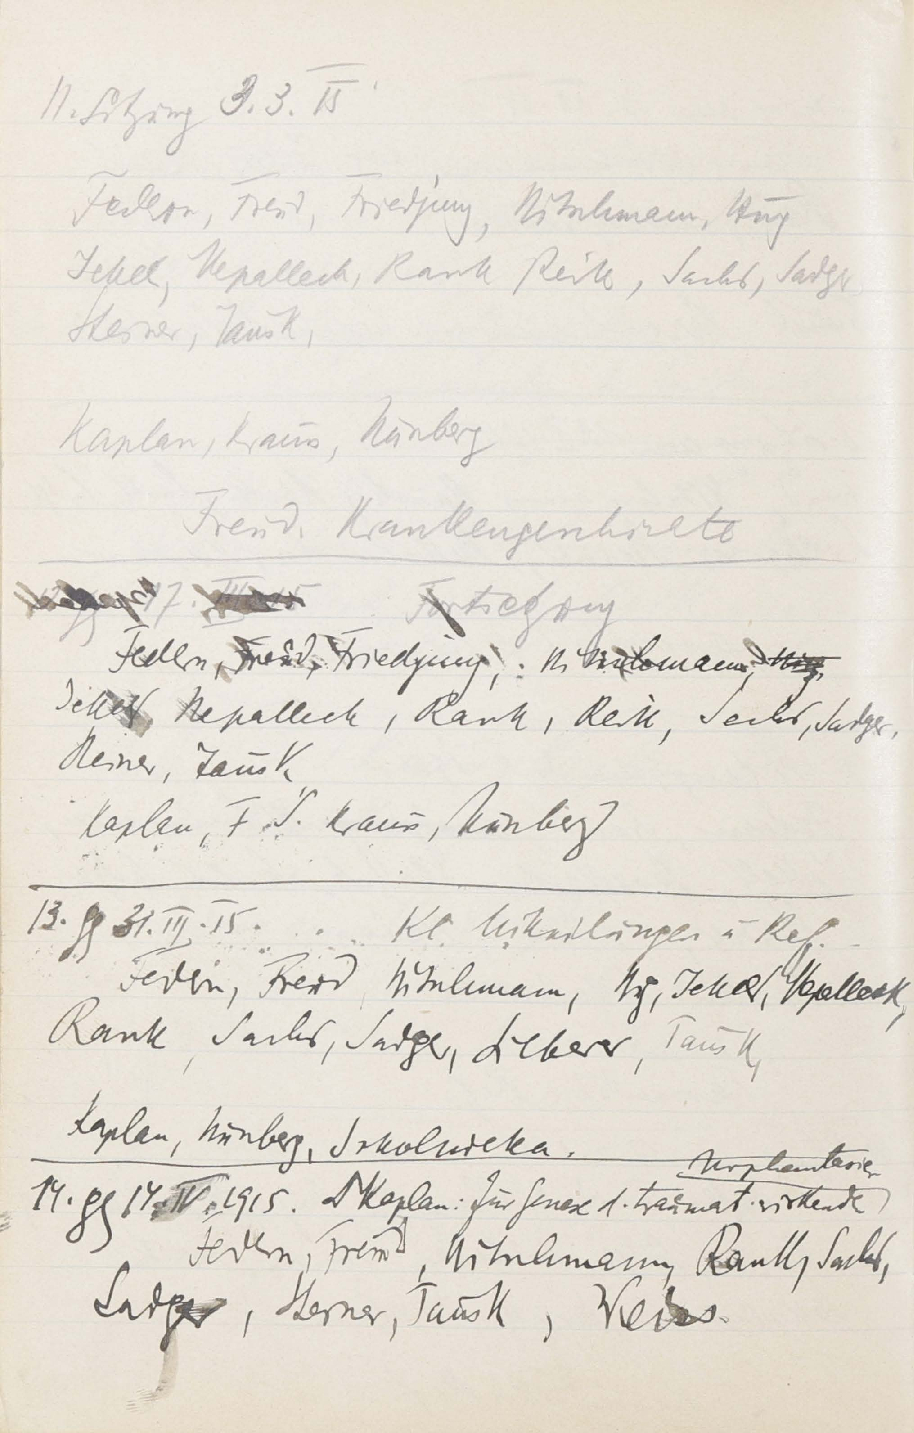 11. Sitzung 3.3. 15
Federn, Freud, Friedjung, Hitschmann, Hug
Jekel, Nepalleck, Rank Reik, Sachs, Sadger
Steiner, Tausk,
Kaplan, Kraus, Nunberg
Freud. Krankengeschichte
17. III 15 Fortsetzung
Federn, Freud, Friedjung, Hitschmann, Hug,
Jekels Nepalleck, Rank, Reik, Sachs, Sadger,
Steiner, Tausk
Kaplan, F. S. Kraus, Nunberg
13. 31. III. 15. Kl. Mitteilungen u Ref.
Federn, Freud Hitschmann, Hug, Jekels, Nepalleck,
Rank, Sachs, Sadger, Silberer, Tausk,
Kaplan, Nunberg, Sokolnicka.
Urphantasie
14. 14. IV. 1915. Dr Kaplan: Zur Genese d. traumat. wirkende
Federn, Freud, Hitschmann, Rank, Sachs,
Sadger, Steiner, Tausk, Weiss.